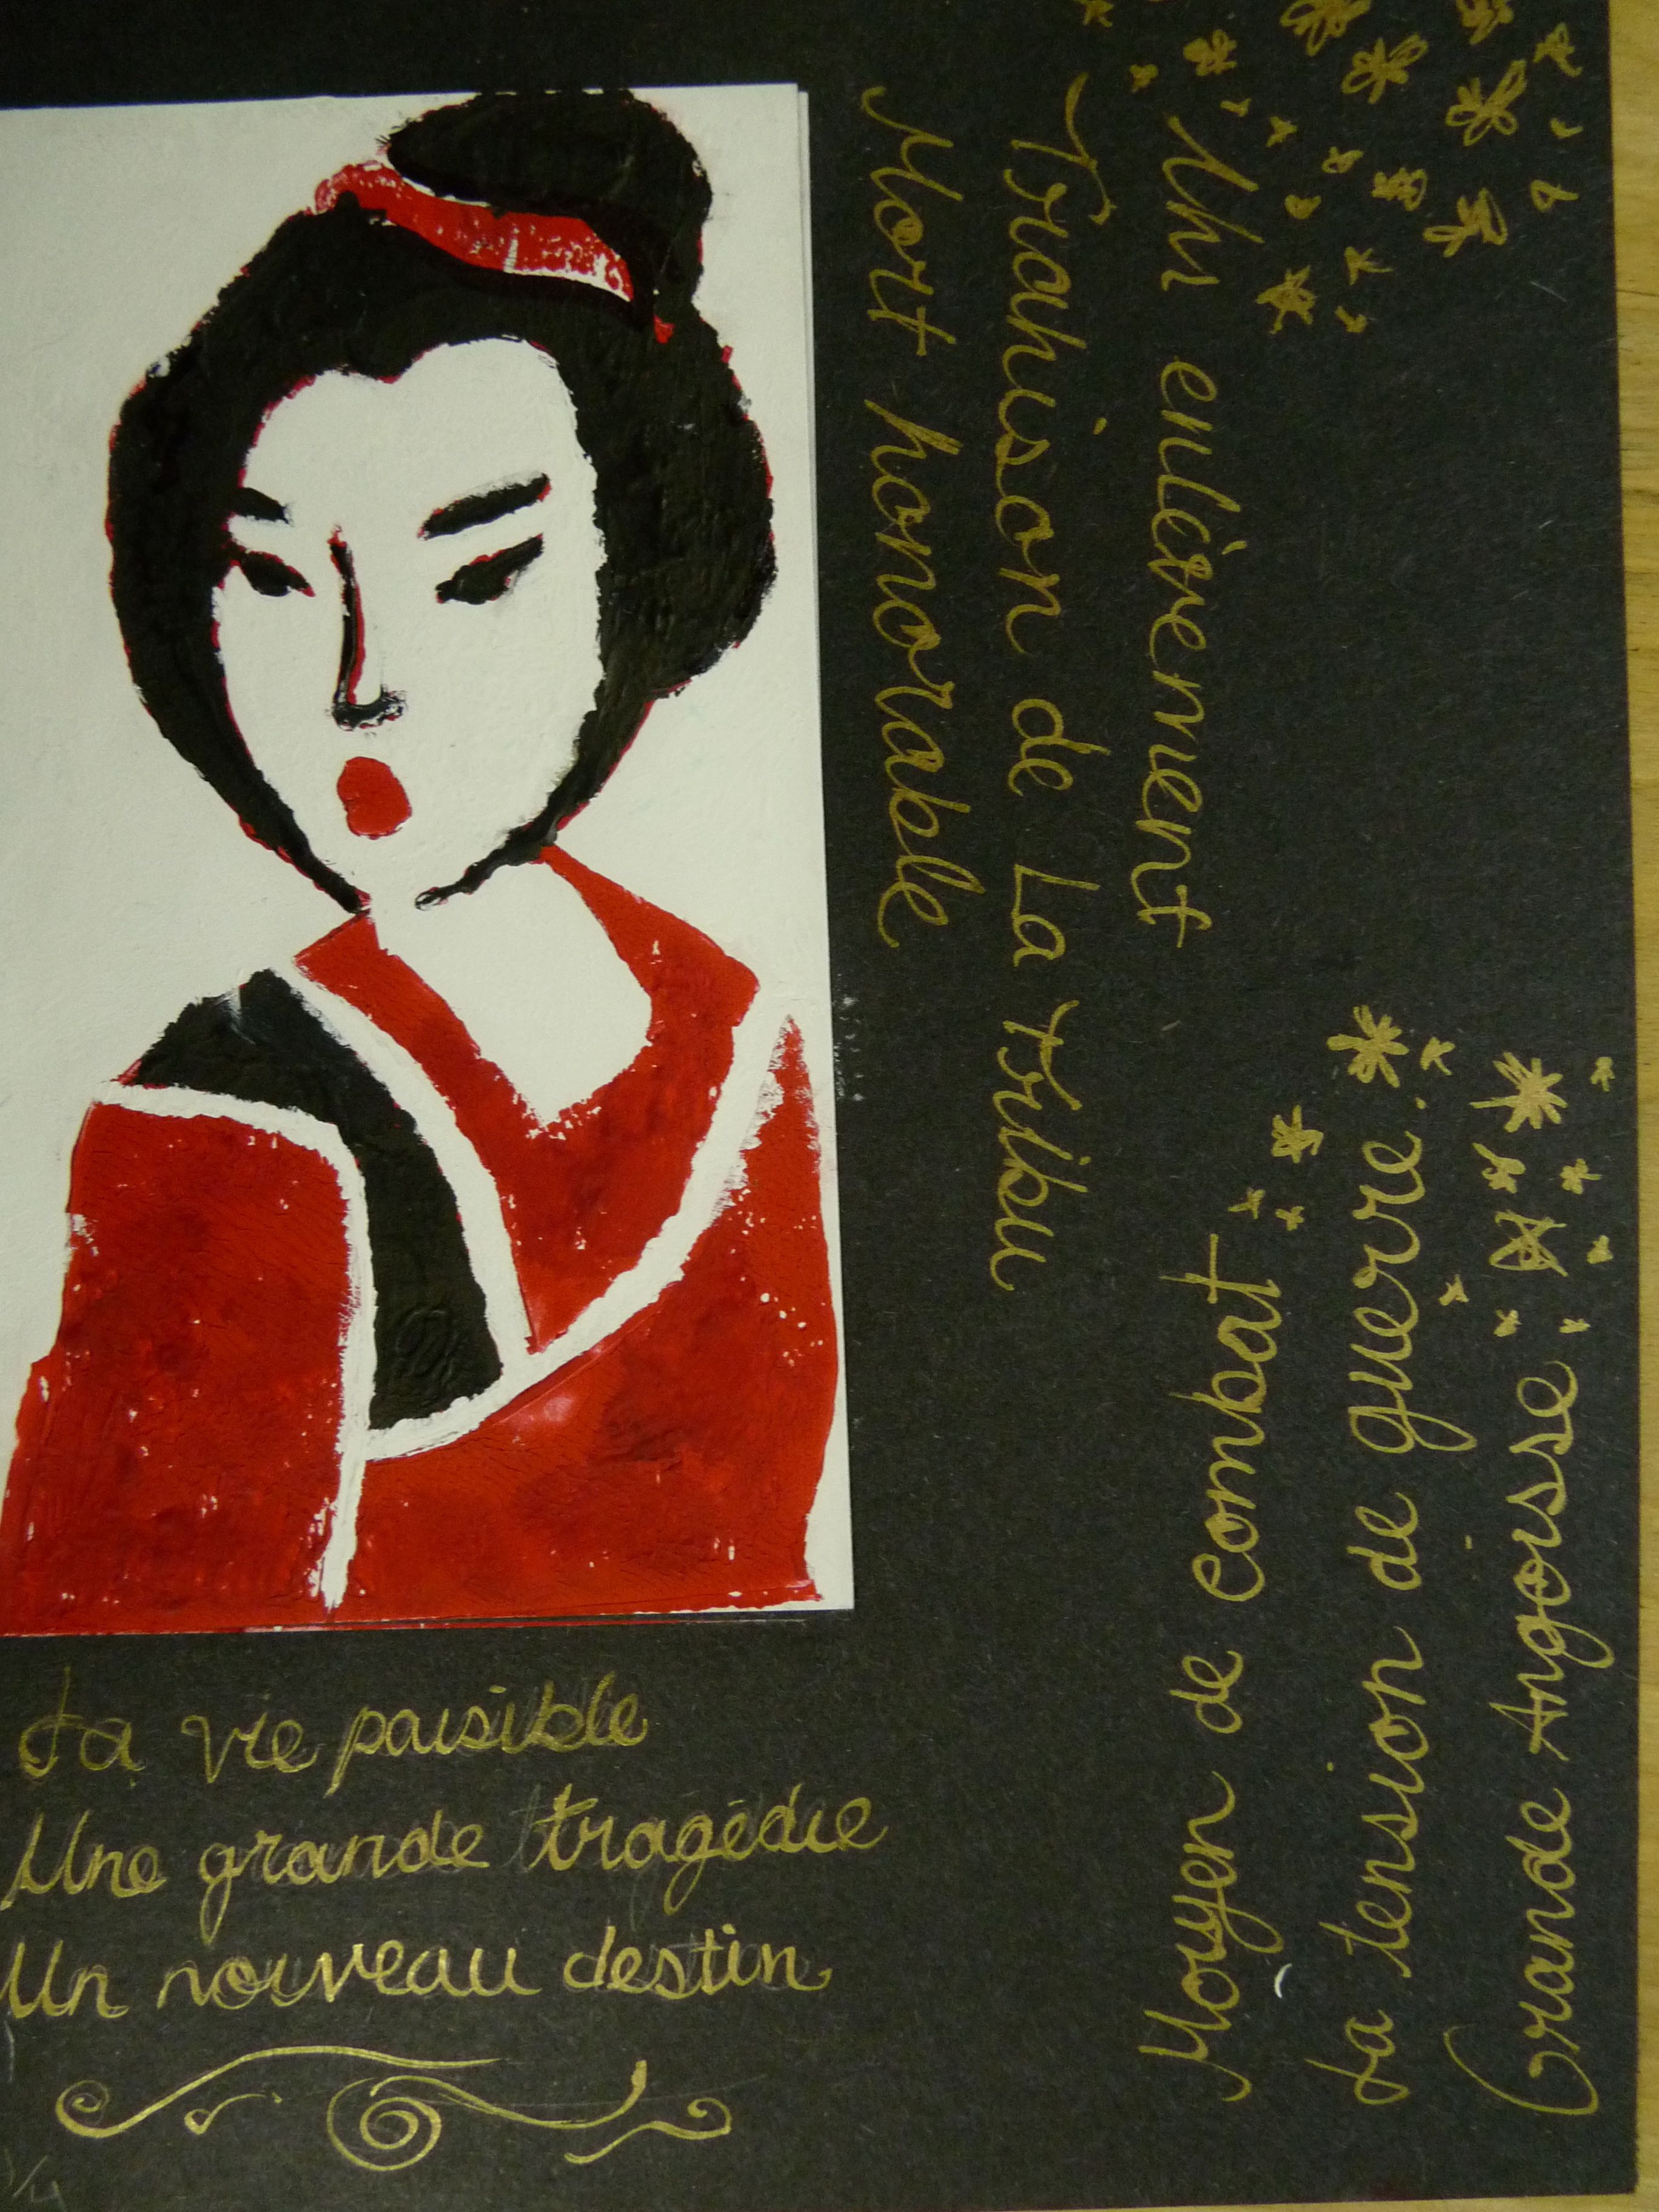 Un enlèvement
Trahison de La tribu
Mort honorable
Moyen de combat
La tension de guerre.
Grande Angoisse
La vie paisible
Une grande tragédie
Un nouveau destin